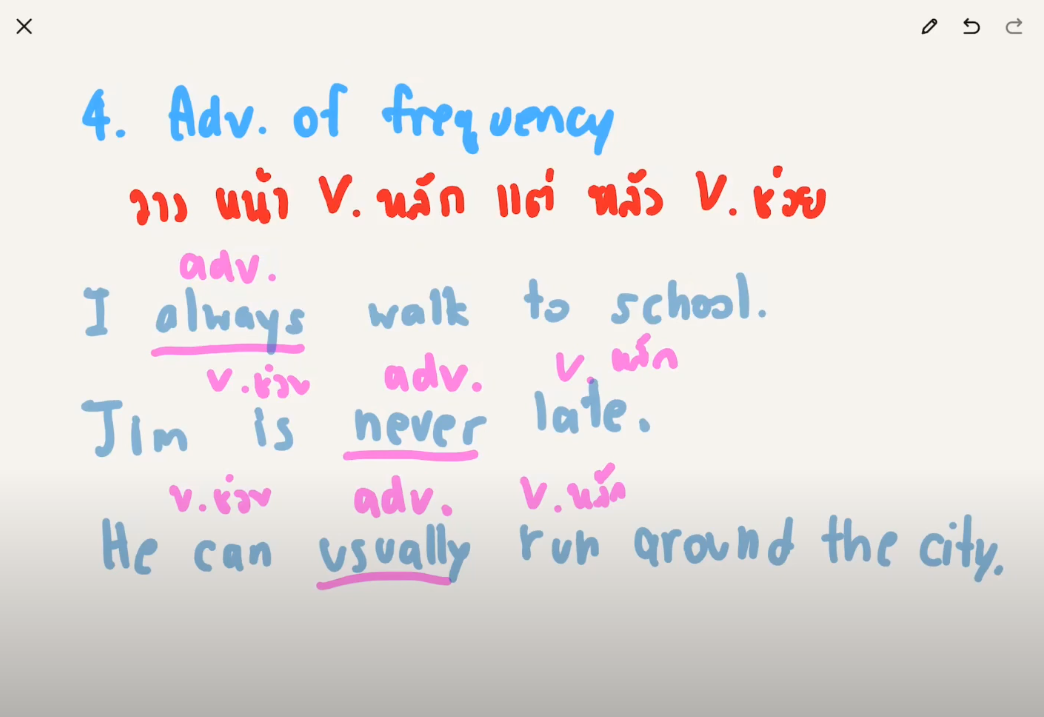 4. Adv. of frequency
วาง หน้า V. หลัก แต่ หลัง V. ช่วย
adv.
I always walk to school.
v.ช่วย adv. V.หลัก
Jim is never late.
v.ช่วย adv. V.หลัก
He can usually run around the city.